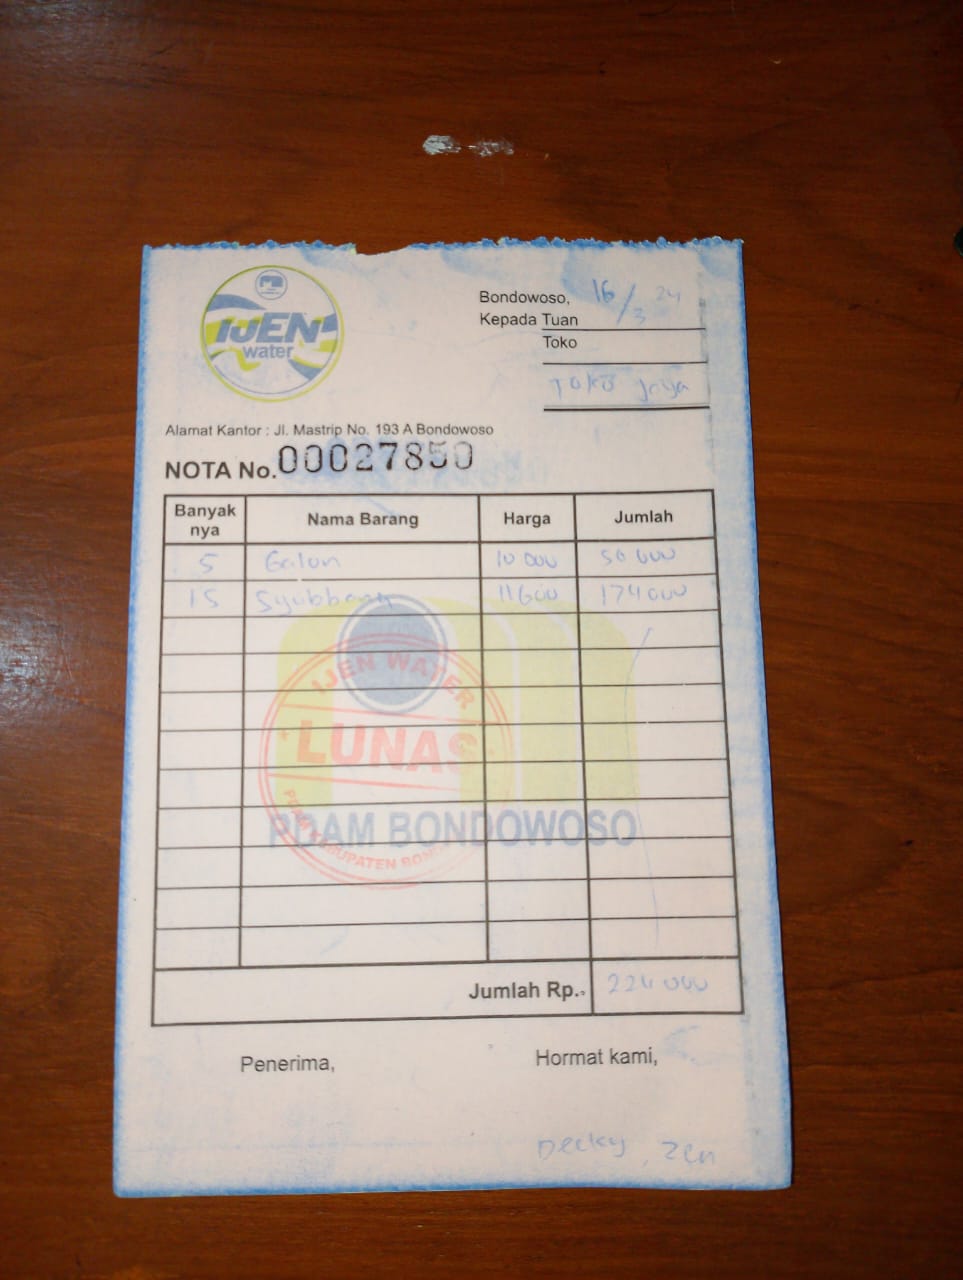 IJEN
water
Bondowoso, 16/3 24
Kepada Tuan
Toko
Toko Jaya
Alamat Kantor : Jl. Mastrip No. 193 A Bondowoso
NOTA No. 00027850
Banyak nya Nama Barang Harga Jumlah
5 Galon 10 000 50 000
15 Syubbanh 11600 174 000
IJEN WATER
LUNAS
PDAM KABUPATEN BONDOWOSO
PDAM BONDOWOSO
Jumlah Rp.- 224 000
Penerima, Hormat kami,
Decky, Zen